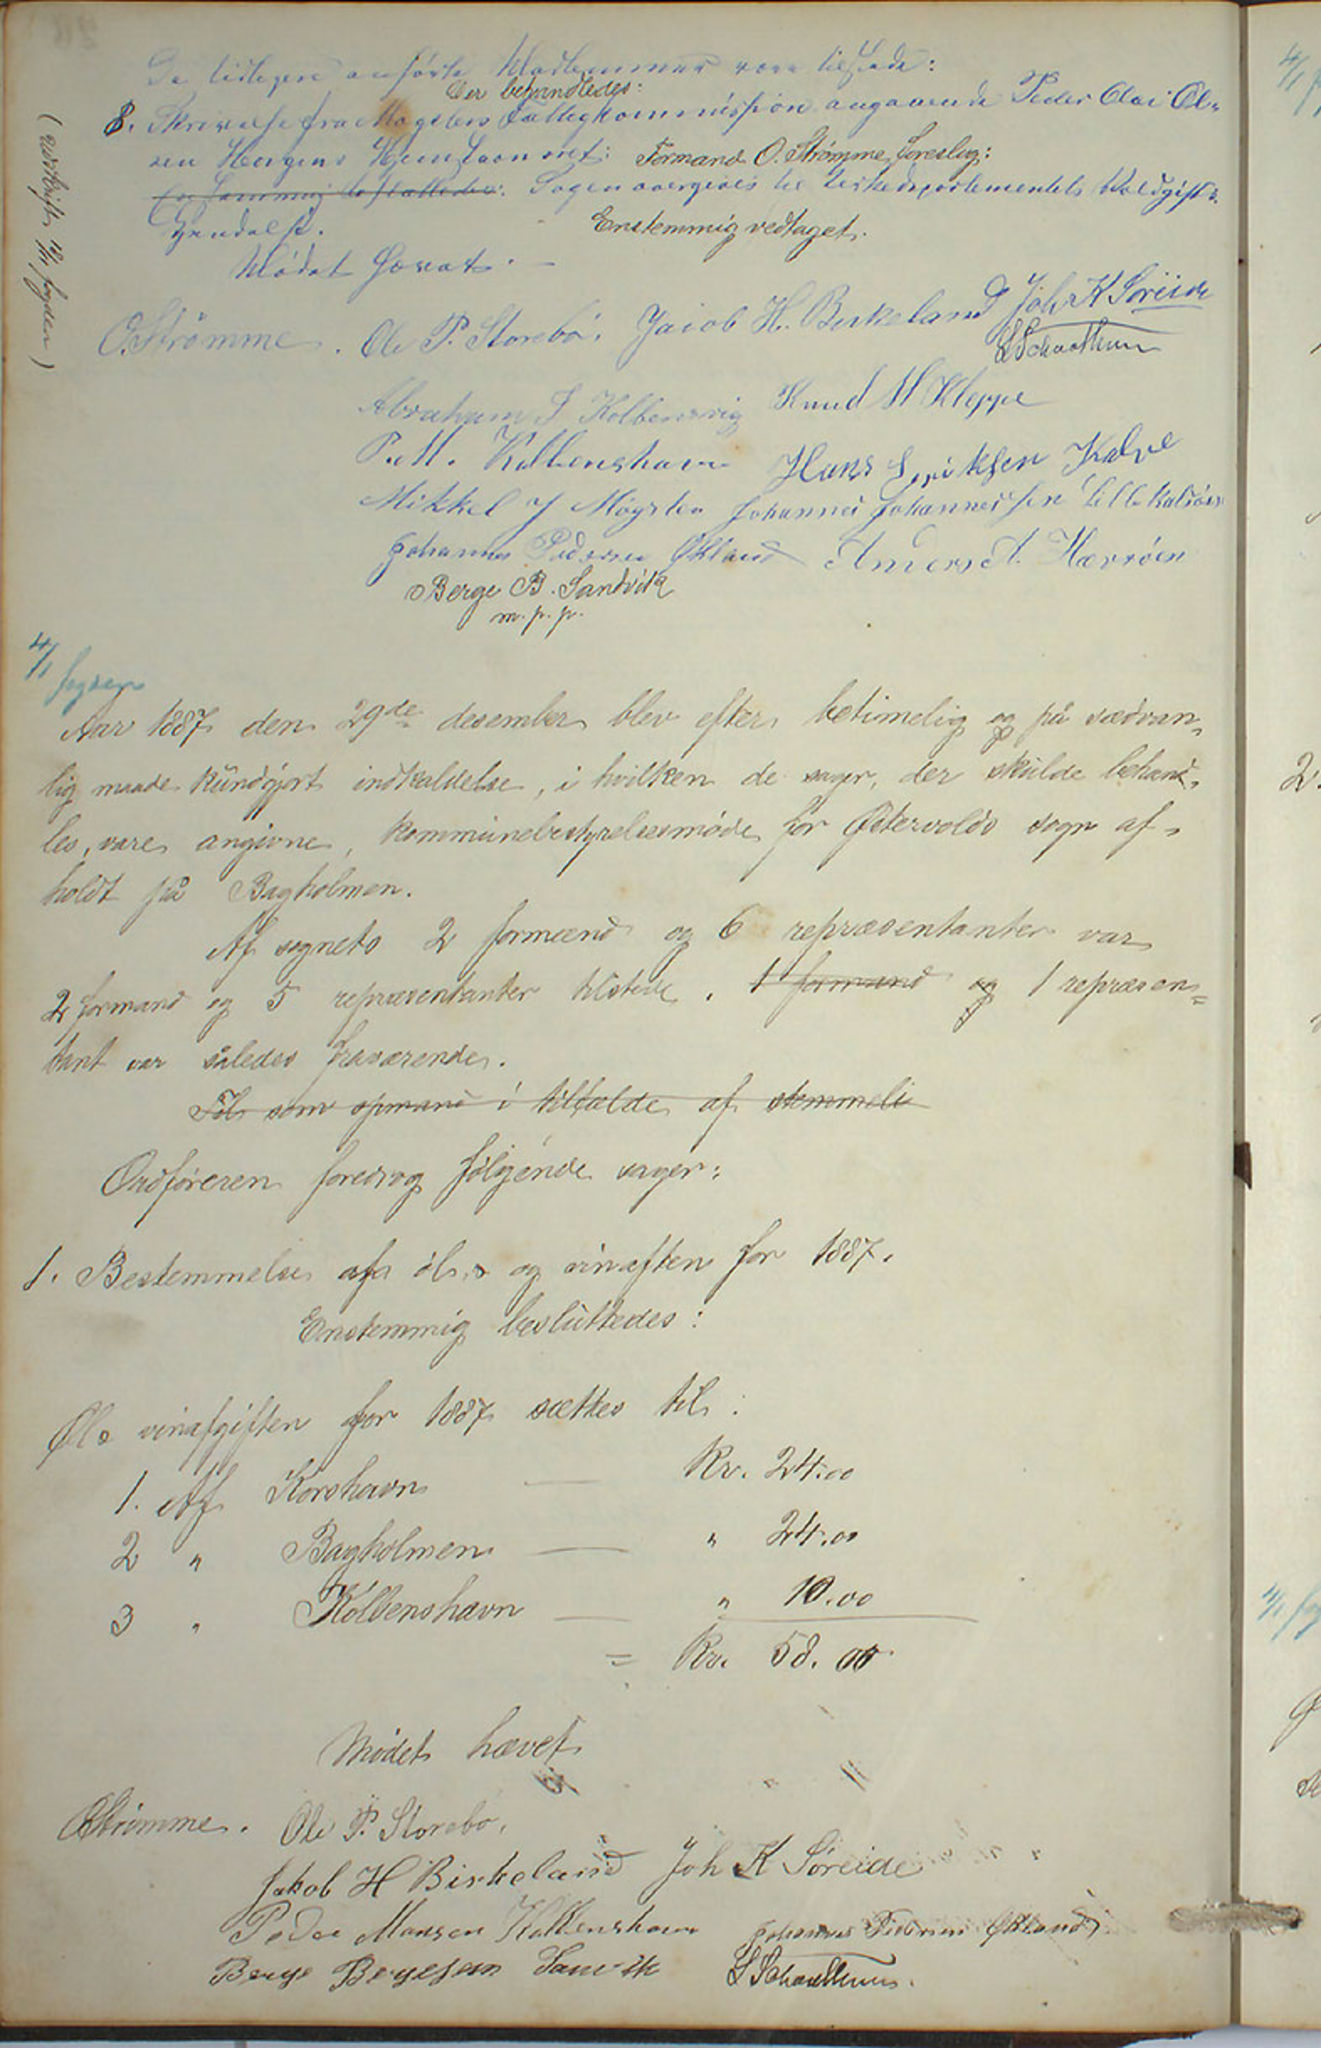 De tidligere anførte Medlemmer vare tilstede:
Der behandledes:
8. Skrivelse fra Møgsters Fattigkommission angaaende Peder Olai Ol-
sen Horgens Hjemstavnsret: Formand O. Strømme foreslog:
Sagen overgives til Kirkedepartementets Voldgifts-
kjendelse. Enstemmig vedtaget.
Mødet hævet. —
(udskrift fogden)
O. Strømme. Ole P. Storebø. Jacob H. Birkeland Joh K Søreide
Abraham J Kolbensvig Knud H Kleppe
P. M. Kolbenshavn Hans Eriksen Kalve
Mikkel J Møgster Johannes Johannessen Lillekalsøen
Johannes Pedersen Økland Anders A. Hevrøen
Berge B. Sandvik
m. p. p.
4/1 fogden
Aar 1887 den 29de desember blev efter betimelig og på sædvan-
lig maade kundgjort indkaldelse, i hvilken de sager, der skulde behand-
les, vare angivne, kommunebestyrelsesmøde for Østervolds sogn af-
holdt på Bagholmen.
Af sognets 2 formænd og 6 repræsentanter var
2 formænd og 5 repræsentanter tilstede. 1 formand og 1 repræsen-
tant var således fraværende.
Til som opmand i tilfælde af stemmeli
Ordføreren foredrog følgende sager:
1. Bestemmelse af øl- og vinaften for 1887.
Enstemmig besluttedes:
Øl- vinafgiften for 1887 sættes til:
1. Af Korshavn — Kr. 24.00
2 " Bagholmen — " 24.00
3 " Kolbenshavn — " 10.00
= Kr. 58.00
Mødet hævet
OStrømme. Ole P. Storebø.
Jakob H Birkeland Joh K Søreide
Peder Monsen Kolbenshavn Johannes Pedersen Økland
Berge Bergesen Sanvik